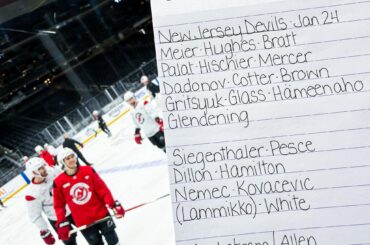 New Jersey Devils · Jan 24
Meier · Hughes · Bratt
Palat · Hischier · Mercer
Dadonov · Cotter · Brown
Gritsyuk · Glass · Hämeenaho
Glendening
Siegenthaler · Pesce
Dillon · Hamilton
Nemec · Kovacevic
(Lammikko) · White
/ Allen